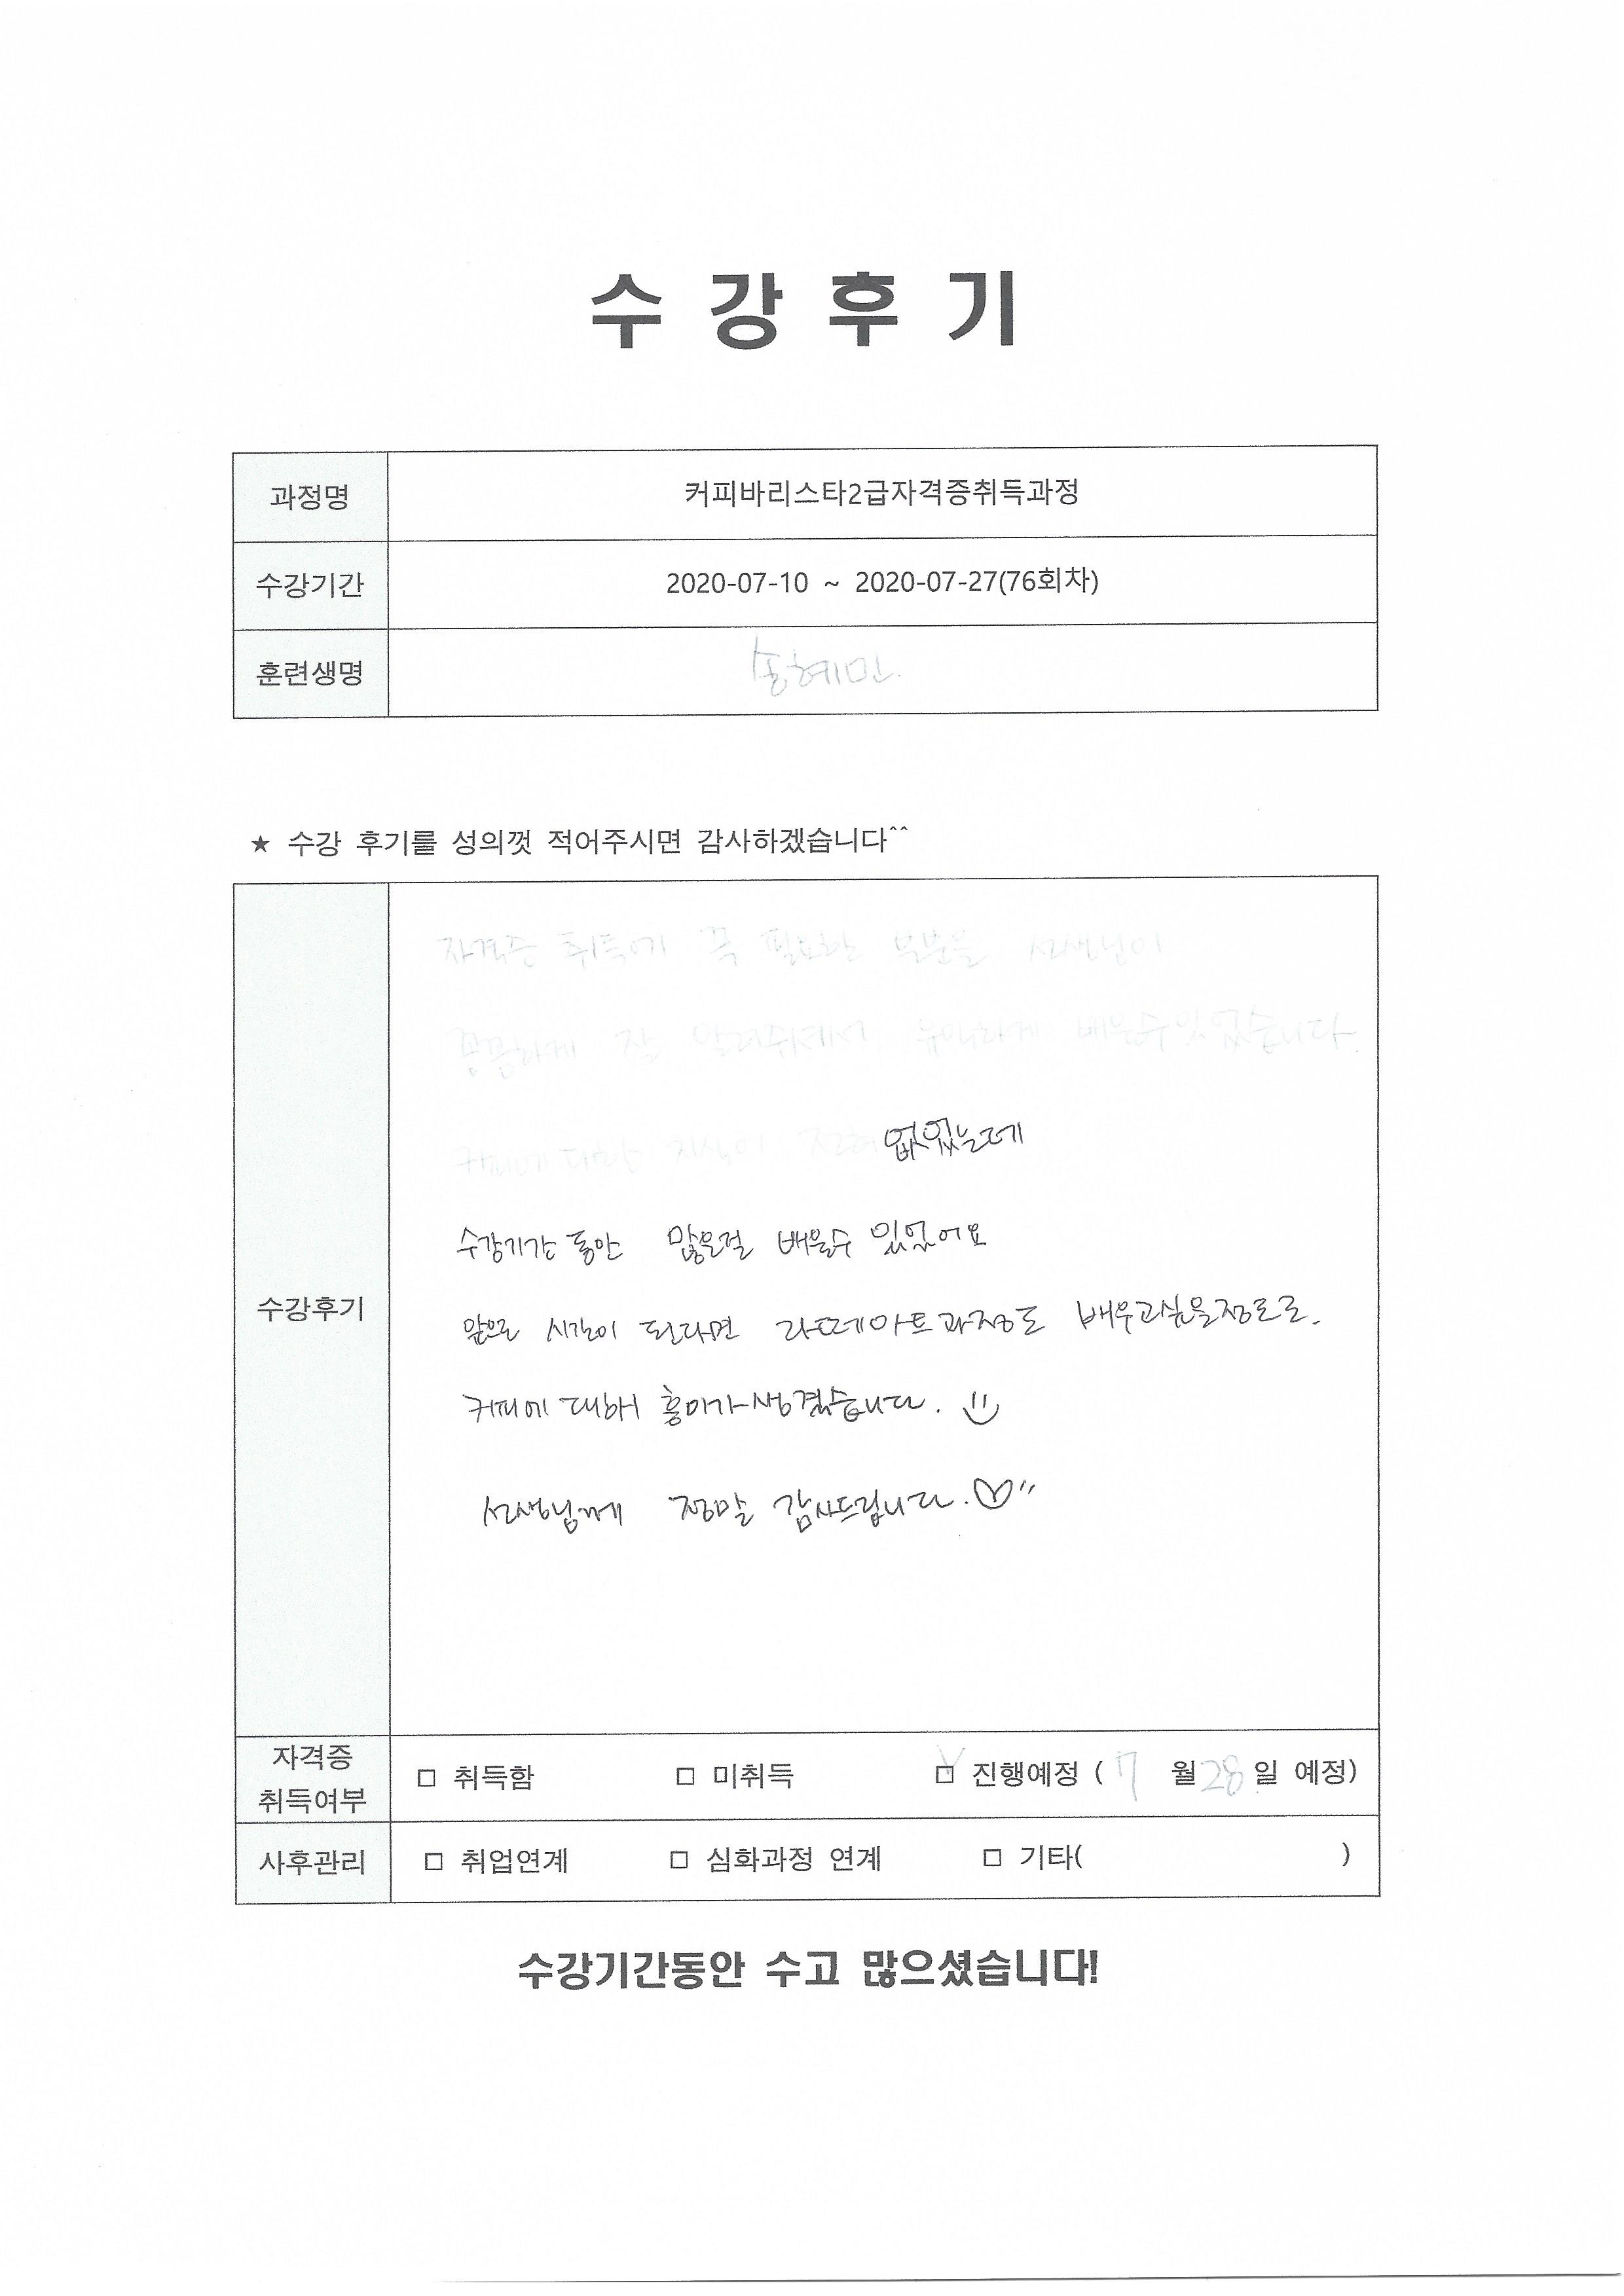 수강후기
과정명 커피바리스타2급자격증취득과정
수강기간 2020-07-10 ~ 2020-07-27(76회차)
훈련생명 송혜민.
★ 수강 후기를 성의껏 적어주시면 감사하겠습니다^^
자격증 취득에 꼭 필요한 부분을 선생님이
꼼꼼하게 잘 알려주셔서 유익하게 배울수있었습니다.
커피에 대한 지식이 전혀 없었는데
수강기간 동안 많은걸 배울수 있었어요
수강후기
앞으로 시간이 된다면 라떼아트과정도 배우고싶을정도로.
커피에 대해 흥미가 생겼습니다.
선생님께 정말 감사드립니다.♡"
자격증 취득여부 □ 취득함 □ 미취득 ☑ 진행예정 ( 7 월 28 일 예정)
사후관리 □ 취업연계 □ 심화과정 연계 □ 기타( )
수강기간동안 수고 많으셨습니다!